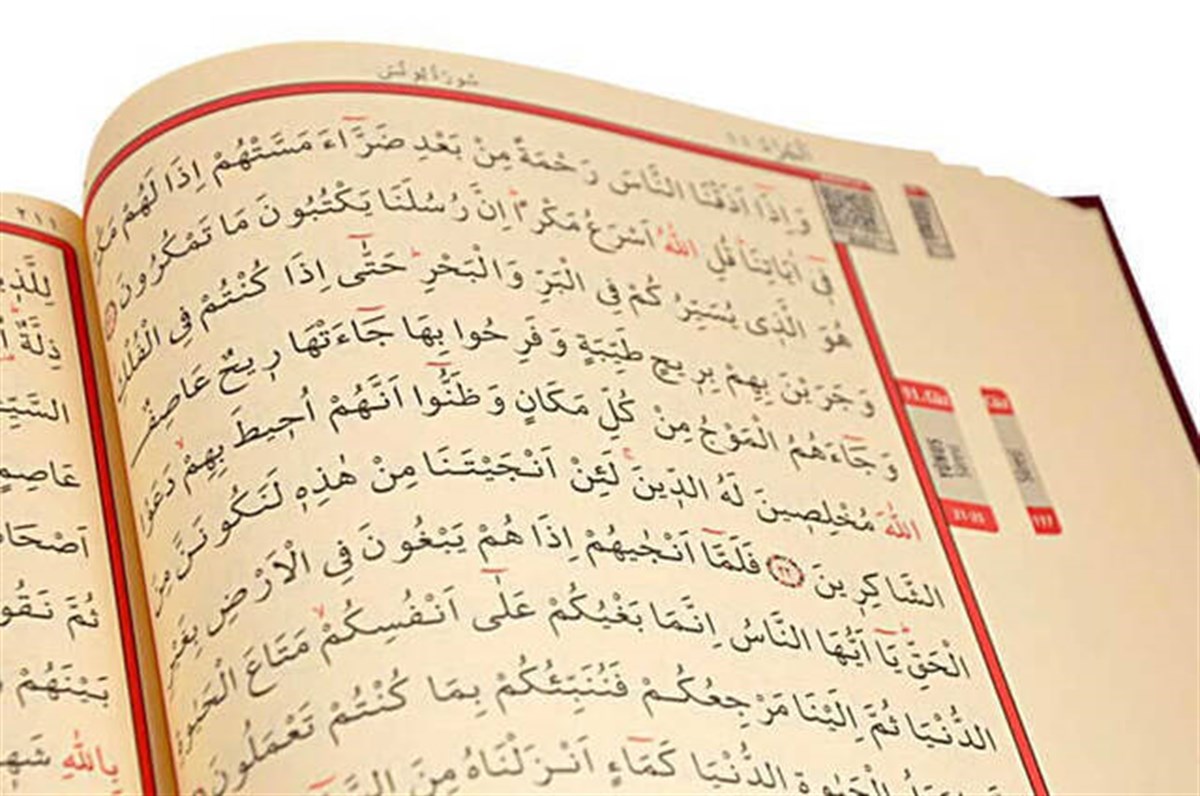 سُورَةُ يُونُسَ
اَلْجُزْءُ ١١
وَاِذَٓا اَذَقْنَا النَّاسَ رَحْمَةً مِنْ بَعْدِ ضَرَّٓاءَ مَسَّتْهُمْ اِذَا لَهُمْ مَكْرٌ
فٖٓي اٰيَاتِنَاۜ قُلِ اللّٰهُ اَسْرَعُ مَكْراًۜ اِنَّ رُسُلَنَا يَكْتُبُونَ مَا تَمْكُرُونَ
هُوَ الَّذٖي يُسَيِّرُكُمْ فِي الْبَرِّ وَالْبَحْرِۜ حَتّٰٓى اِذَا كُنْتُمْ فِي الْفُلْكِ
وَجَرَيْنَ بِهِمْ بِرٖيحٍ طَيِّبَةٍ وَفَرِحُوا بِهَا جَٓاءَتْهَا رٖيحٌ عَاصِفٌ
وَجَٓاءَهُمُ الْمَوْجُ مِنْ كُلِّ مَكَانٍ وَظَنُّٓوا اَنَّهُمْ اُحٖيطَ بِهِمْۙ دَعَوُا
اللّٰهَ مُخْلِصٖينَ لَهُ الدّٖينَۚ لَئِنْ اَنْجَيْتَنَا مِنْ هٰذِهٖ لَنَكُونَنَّ مِنَ
الشَّاكِرٖينَ ٢٢ فَلَمَّٓا اَنْجٰيهُمْ اِذَا هُمْ يَبْغُونَ فِي الْاَرْضِ بِغَيْرِ
الْحَقِّۜ يَٓا اَيُّهَا النَّاسُ اِنَّمَا بَغْيُكُمْ عَلٰٓى اَنْفُسِكُمْۙ مَتَاعَ الْحَيٰوةِ
الدُّنْيَا ثُمَّ اِلَيْنَا مَرْجِعُكُمْ فَنُنَبِّئُكُمْ بِمَا كُنْتُمْ تَعْمَلُونَ
الْحَيٰوةِ الدُّنْيَا كَمَٓاءٍ اَنْزَلْنَاهُ مِنَ
Cüz
11.
YUNUS
Sûresi
21-25
117
٢١١
عَاصِمٍ
ثُمَّ نَقُو
بَيْنَهُمْ
بِاللّٰهِ شَهٖي